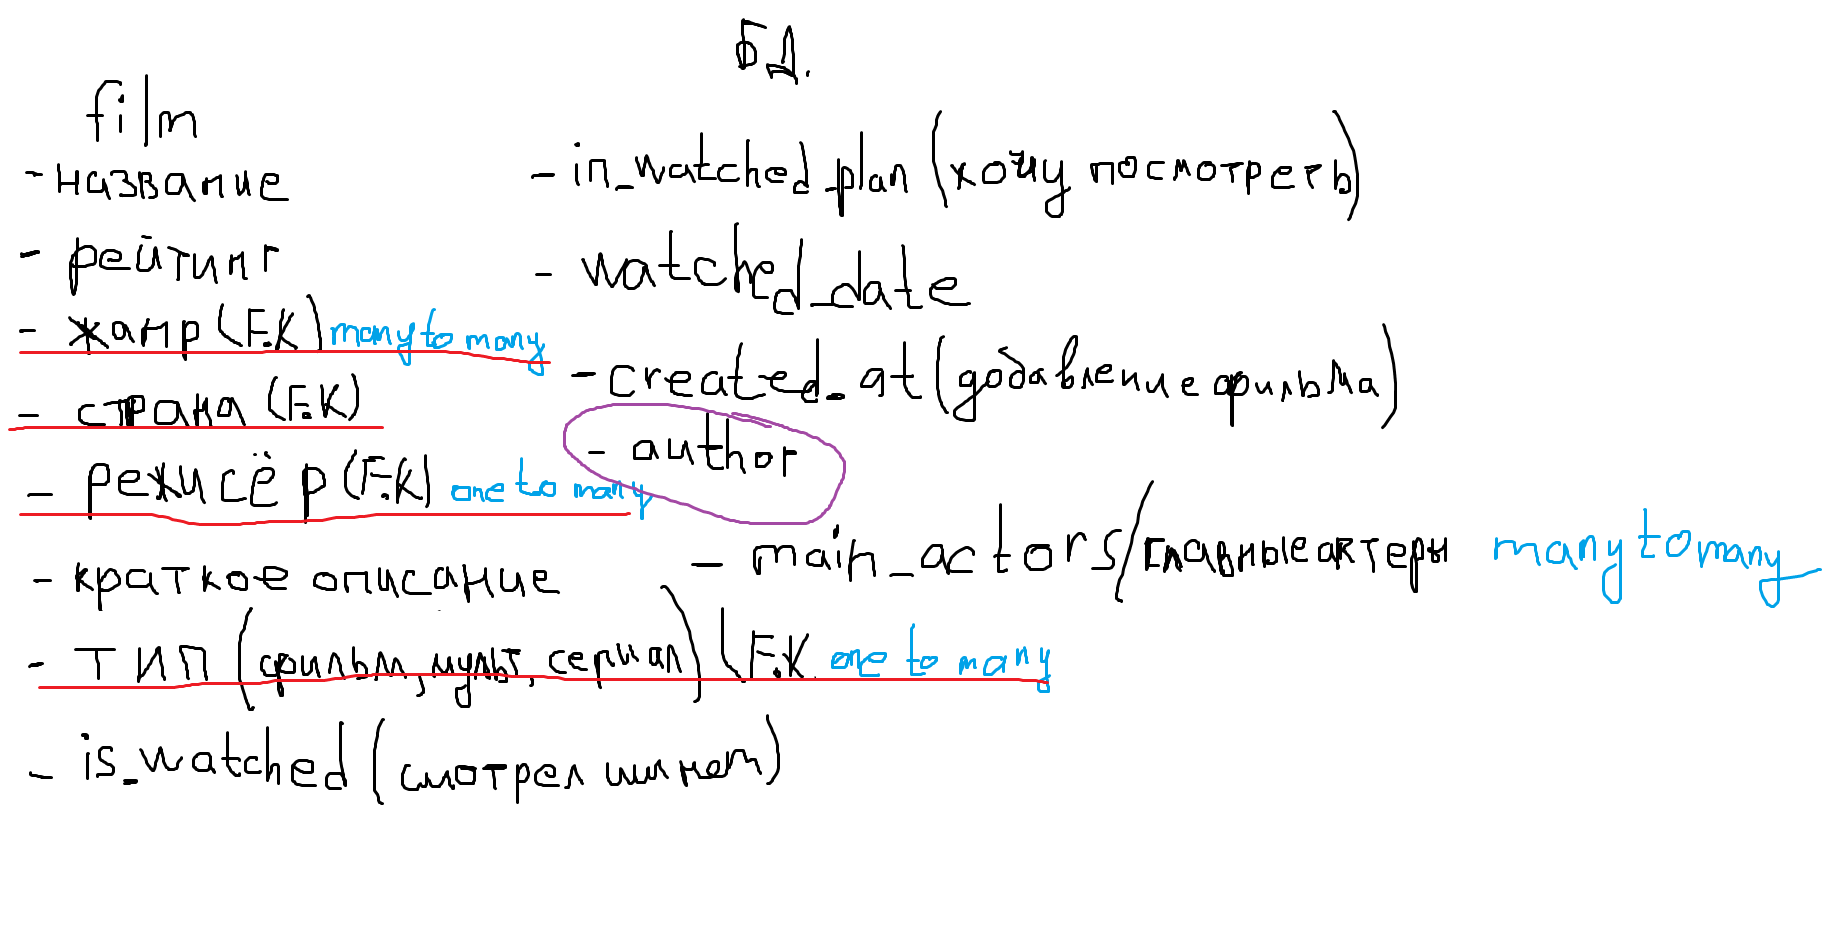 БД.
film
- название
- рейтинг
- жанр (F.K) many to many
- страна (F.K)
- режисёр (F.K) one to many
- краткое описание
- тип (фильм, мульт, сериал) (F.K one to many
- is_watched (смотрел или нет)
- in_watched_plan (хочу посмотреть)
- watched_date
- created_at (добавление фильма)
- author
- main_actors/главные актеры many to many